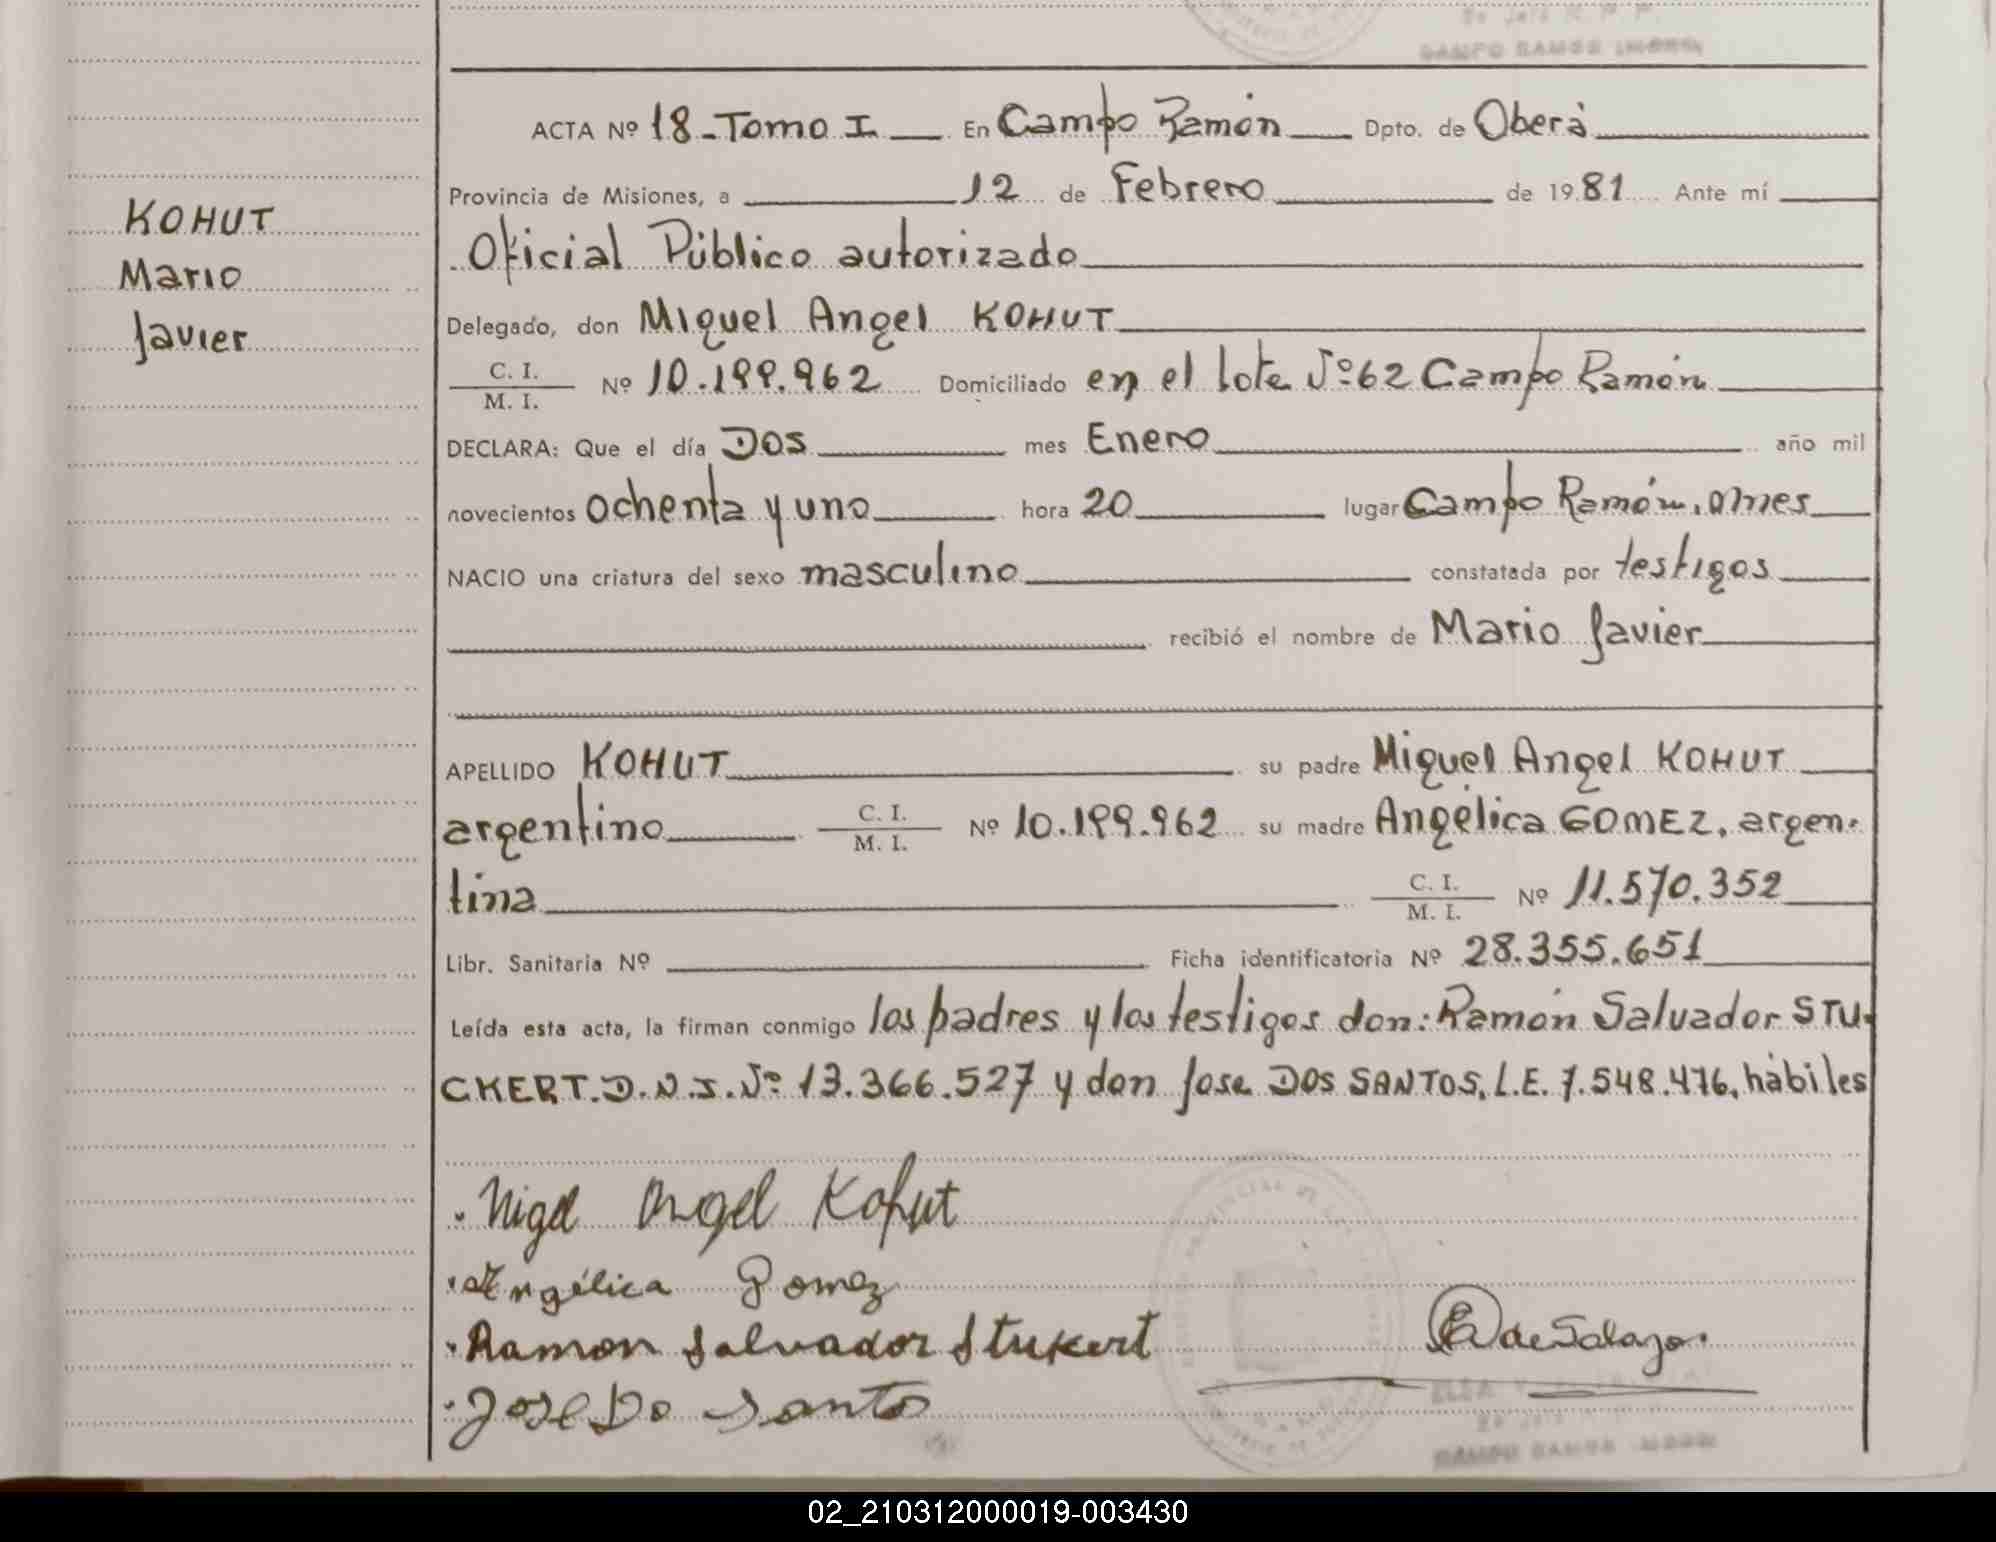 CAMPO RAMON
ACTA Nº 18 - Tomo I En Campo Ramón Dpto. de Oberá
Provincia de Misiones, a 12 de Febrero de 1981 Ante mí
Oficial Público autorizado
Delegado, don Miguel Angel KOHUT
C. I.
M. I.
Nº 10.199.962 Domiciliado en el lote Nº 62 Campo Ramón
DECLARA: Que el día DOS mes Enero año mil
novecientos ochenta y uno hora 20 lugar Campo Ramón,
NACIO una criatura del sexo masculino constatada por testigos
recibió el nombre de Mario Javier
APELLIDO KOHUT su padre Miguel Angel KOHUT
argentino C. I. M. I. Nº 10.199.962 su madre Angélica GOMEZ, argen-
tina C. I. M. I. Nº 11.570.352
Libr. Sanitaria Nº Ficha identificatoria Nº 28.355.651
Leída esta acta, la firman conmigo los padres y los testigos don: Ramón Salvador STU-
CKERT. D.N.I. Nº 13.366.527 y don Jose DOS SANTOS, L.E. 7.548.476, hábiles
Migel Angel Kohut
Angélica Gomez
Ramon Salvador Stukert
Jose Do Santos
de Salazar
ELSA
CAMPO RAMON
KOHUT
Mario
Javier
02_210312000019-003430